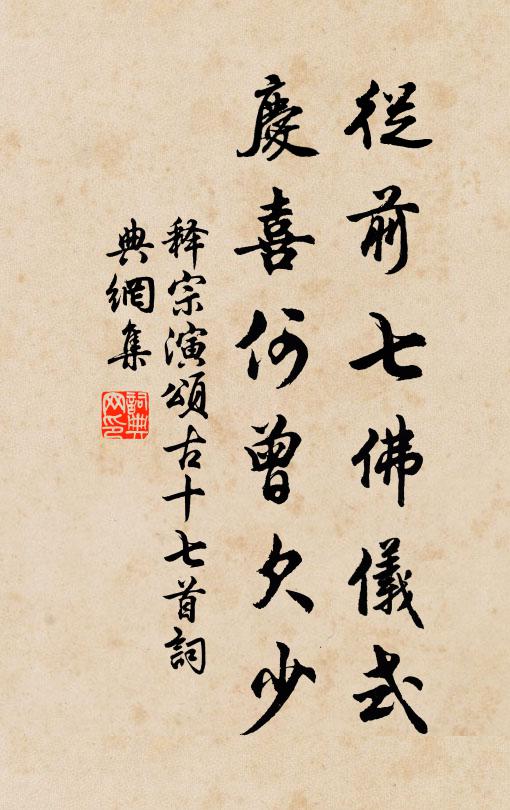 從前七佛儀式
慶喜何曾欠少
释宗演頌古十七首詞
典網集
詞典
网印